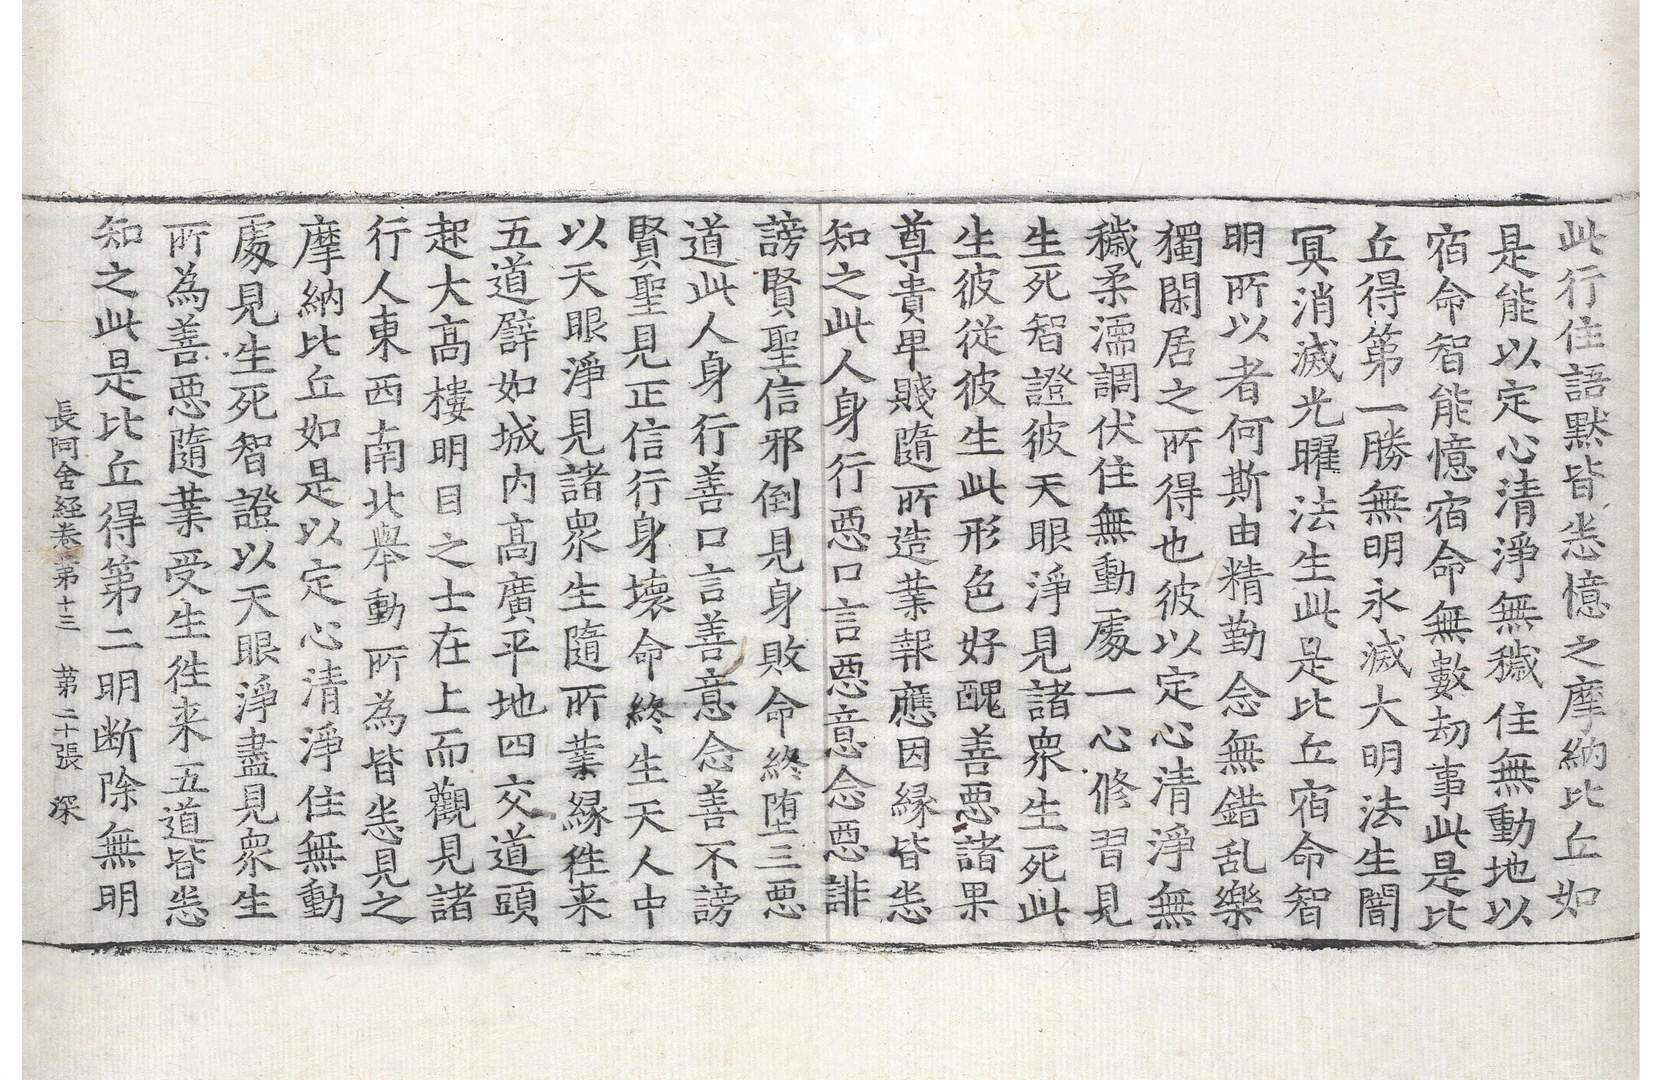 此行住語默皆悉憶之摩納比丘如
是能以定心清淨無穢住無動地以
宿命智能憶宿命無數劫事此是比
丘得第一勝無明永滅大明法生闇
冥消滅光曜法生此是比丘宿命智
明所以者何斯由精勤念無錯乱樂
獨閑居之所得也彼以定心清淨無
穢柔濡調伏住無動處一心修習見
生死智證彼天眼淨見諸衆生死此
生彼從彼生此形色好醜善惡諸果
尊貴卑賤隨所造業報應因緣皆悉
知之此人身行惡口言惡意念惡誹
謗賢聖信邪倒見身敗命終墮三惡
道此人身行善口言善意念善不謗
賢聖見正信行身壞命終生天人中
以天眼淨見諸衆生隨所業緣往来
五道譬如城內高廣平地四交道頭
起大高樓明目之士在上而觀見諸
行人東西南北舉動所為皆悉見之
摩納比丘如是以定心清淨住無動
處見生死智證以天眼淨盡見衆生
所為善惡隨業受生往来五道皆悉
知之此是比丘得第二明断除無明
長阿含経卷第十三 第二十張 深